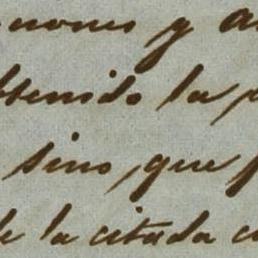 ciones y a
obtenido la p
sino, que p
de la citada c